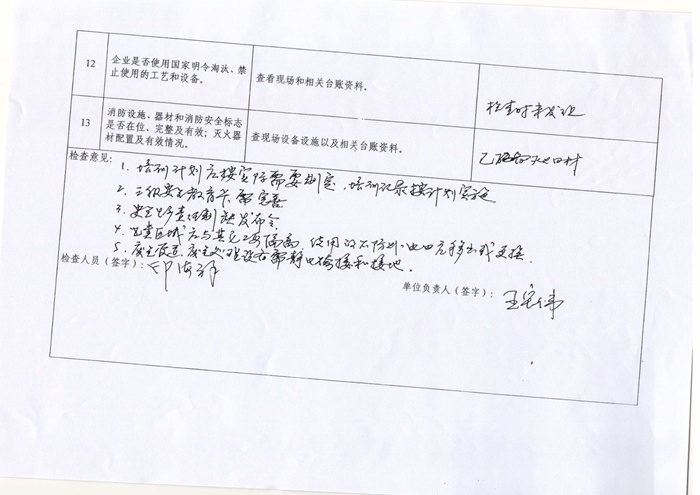 12
企业是否使用国家明令淘汰、禁
止使用的工艺和设备。
查看现场和相关台账资料。
检查时未发现
13
消防设施、器材和消防安全标志
是否在位、完整及有效；灭火器
材配置及有效情况。
查现场设备设施以及相关台账资料。
检查意见：
1. 培训计划应按实际需要制定，培训记录按计划实施
2. 三级安全教育卡需完善
3. 安全生产责任制缺发布令
4. 应与其它工序隔离，使用的不防爆电四应移出或更换.
5. 废气管道、废气处理设施需静电跨接和接地.
检查人员（签字）：
单位负责人（签字）：